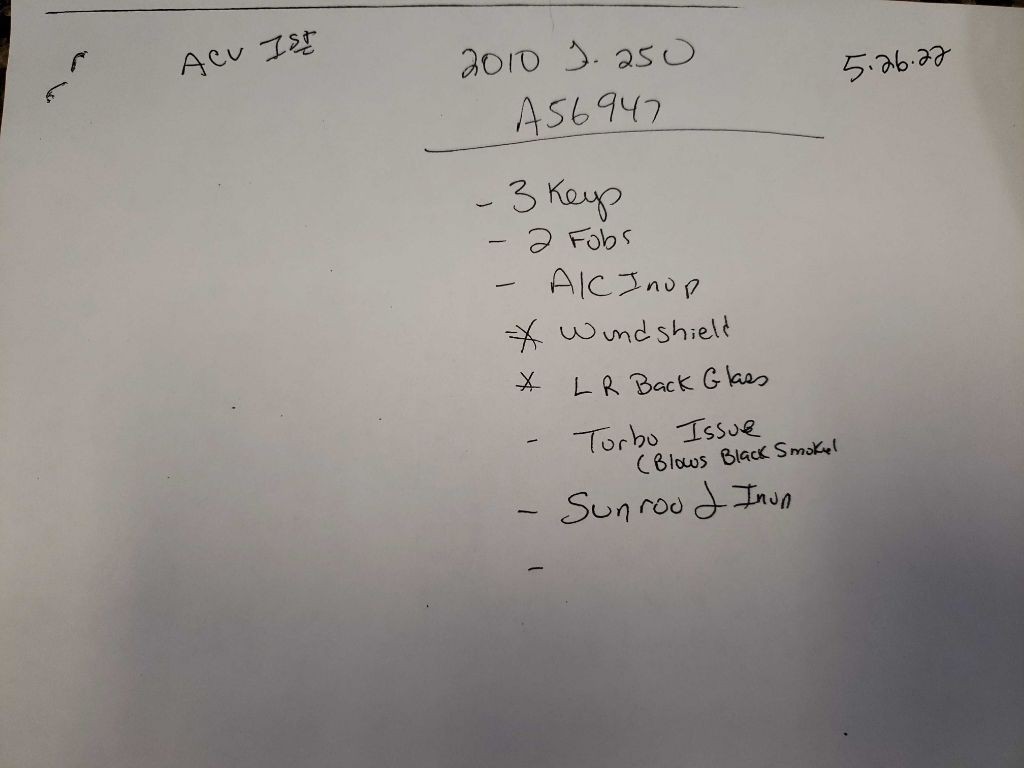 ACV Ist
2010 J. 250
5.26.22
A56947
- 3 Keys
- 2 Fobs
- A/C Inop
* Windshield
* LR Back Glass
- Turbo Issue
(Blows Black Smoke)
- Sunroof Inop
-